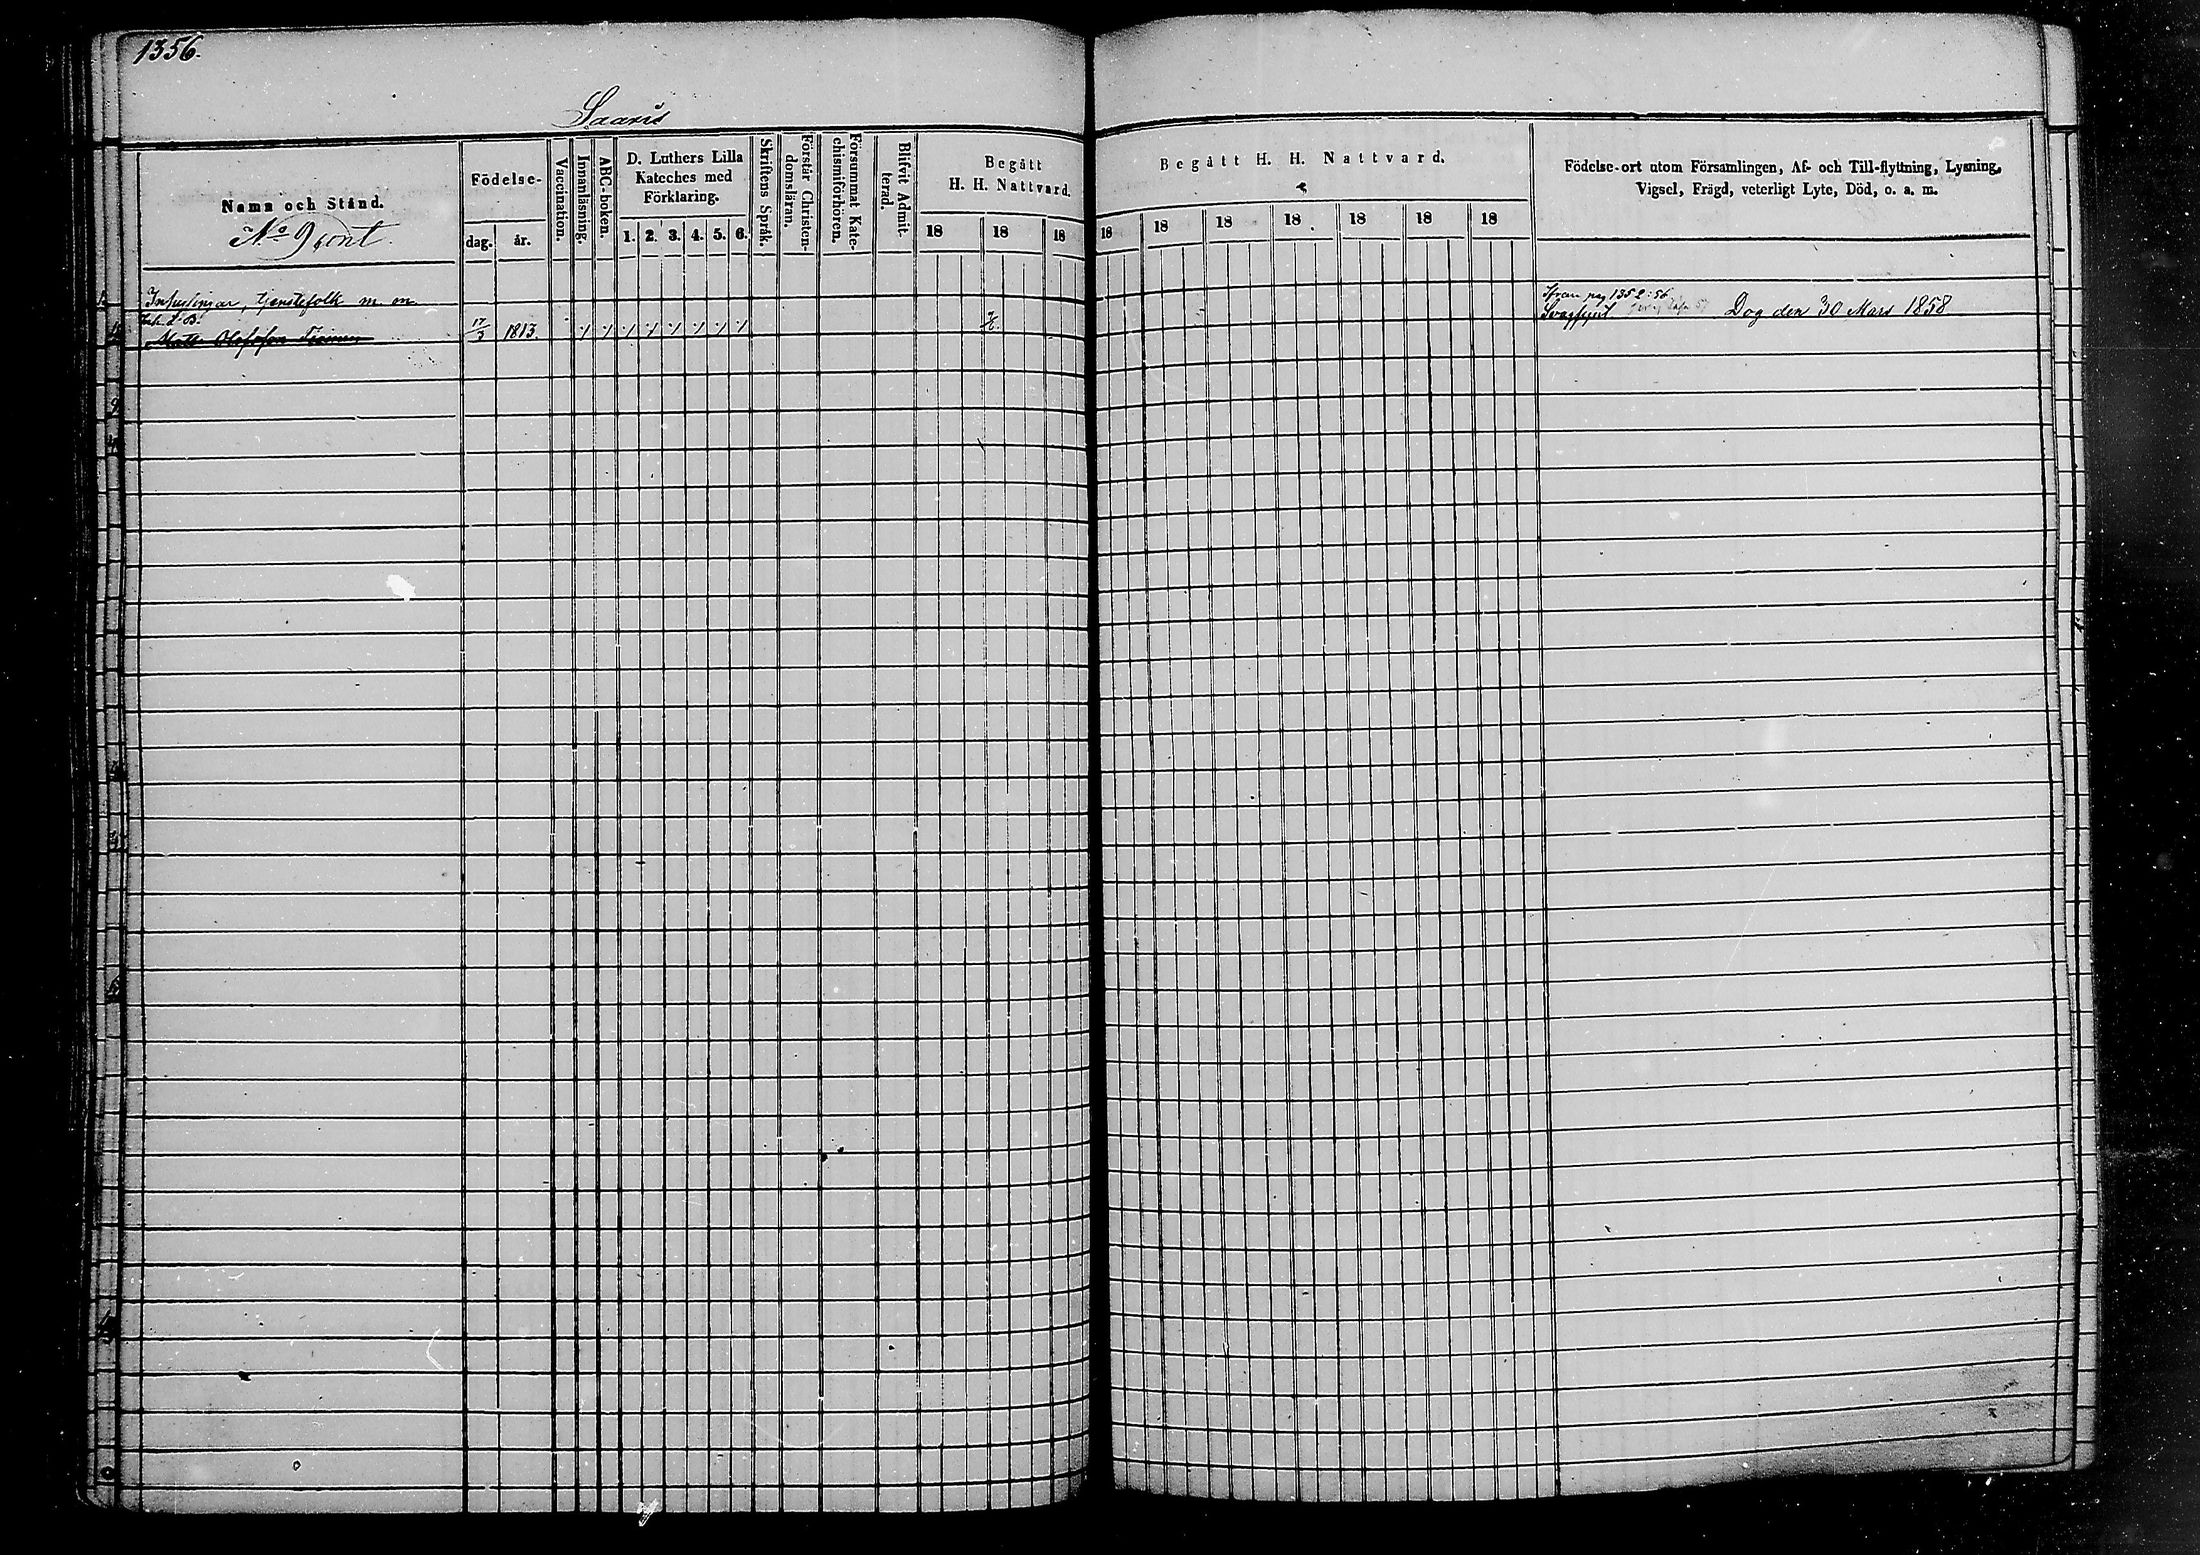 1356.
Saaris
Namn och Stånd.
No 9 cont.
Födelse-
dag.
år.
Vaccination.
Innanläsning.
ABC-boken.
D. Luthers Lilla
Kateches med
Förklaring.
1. 2. 3. 4. 5. 6.
Skriftens Språk.
Förstår Christen-
domsläran.
Försummat Kate-
chismiförhören.
Blifvit Admit-
terad.
Begått
H. H. Nattvard.
18 18 18
Begått H. H. Nattvard.
18 18 18 18 18 18 18
Födelse-ort utom Församlingen, Af- och Till-flyttning, Lysning,
Vigsel, Frägd, veterligt Lyte, Död, o. a. m.
Inhysingar, tjenstefolk m. m.
Matts Olofsson
17/3 1813.
Ifrån pag 1352: 56
Svagsynt
Dog den 30 Mars 1858